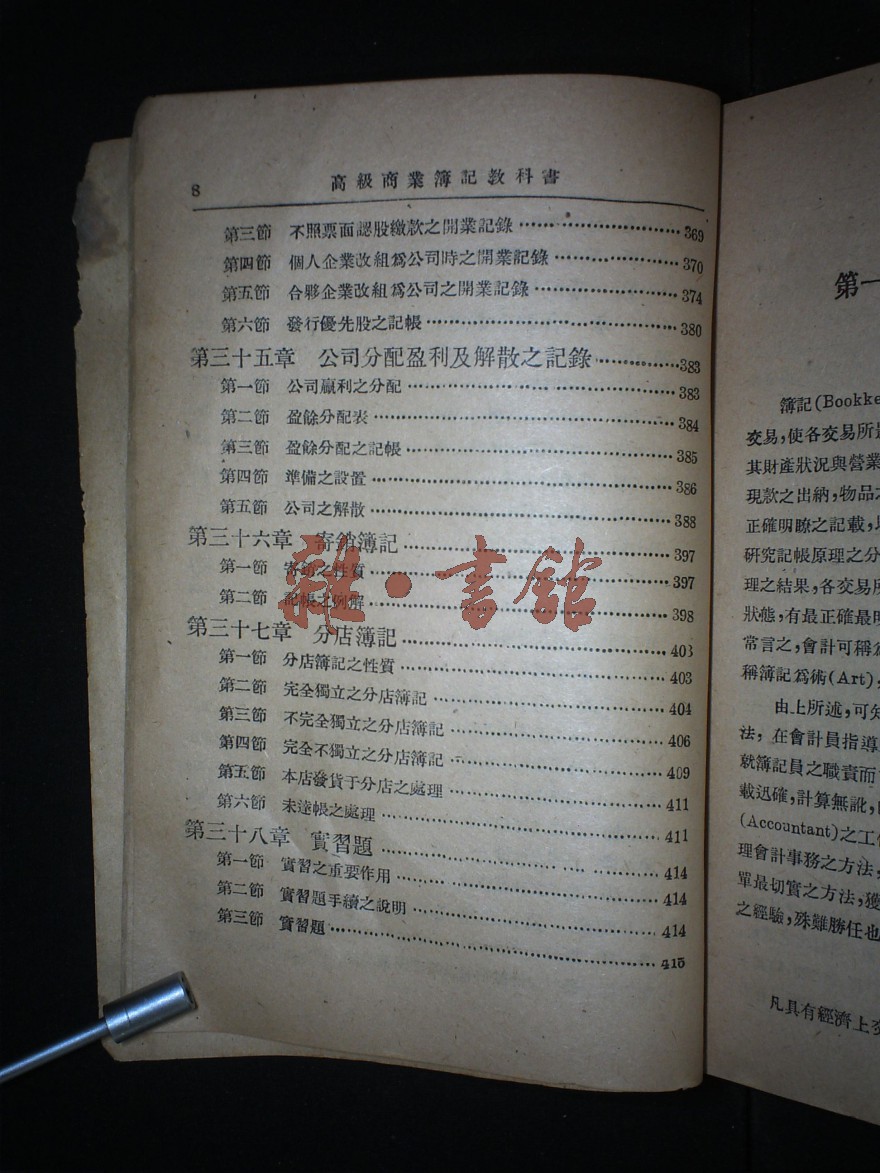 8
高級商業簿記教科書
第三節 不照票面認股繳款之開業記錄 369
第四節 個人企業改組爲公司時之開業記錄 370
第五節 合夥企業改組爲公司之開業記錄 374
第六節 發行優先股之記帳 380
第三十五章 公司分配盈利及解散之記錄 383
第一節 公司贏利之分配 383
第二節 盈餘分配表 384
第三節 盈餘分配之記帳 385
第四節 準備之設置 386
第五節 公司之解散 388
第三十六章 寄銷簿記 397
第一節 寄銷之性質 397
第二節 記帳之例解 398
第三十七章 分店簿記 403
第一節 分店簿記之性質 403
第二節 完全獨立之分店簿記 404
第三節 不完全獨立之分店簿記 406
第四節 完全不獨立之分店簿記 409
第五節 本店發貨于分店之處理 411
第六節 未達帳之處理 411
第三十八章 實習題 414
第一節 實習之重要作用 414
第二節 實習題手續之說明 414
第三節 實習題 415
雜·書館
第一
簿記(Bookke
交易,使各交易所
其財產狀況與營業
現款之出納,物品
正確明瞭之記載,
研究記帳原理之分
理之結果,各交易所
狀態,有最正確最明
常言之,會計可稱爲
稱簿記爲術(Art),
由上所述,可知
法,在會計員指導
就簿記員之職責而
載迅確,計算無訛,
(Accountant)之工
理會計事務之方法,
單最切實之方法,獲
之經驗,殊難勝任也
凡具有經濟上